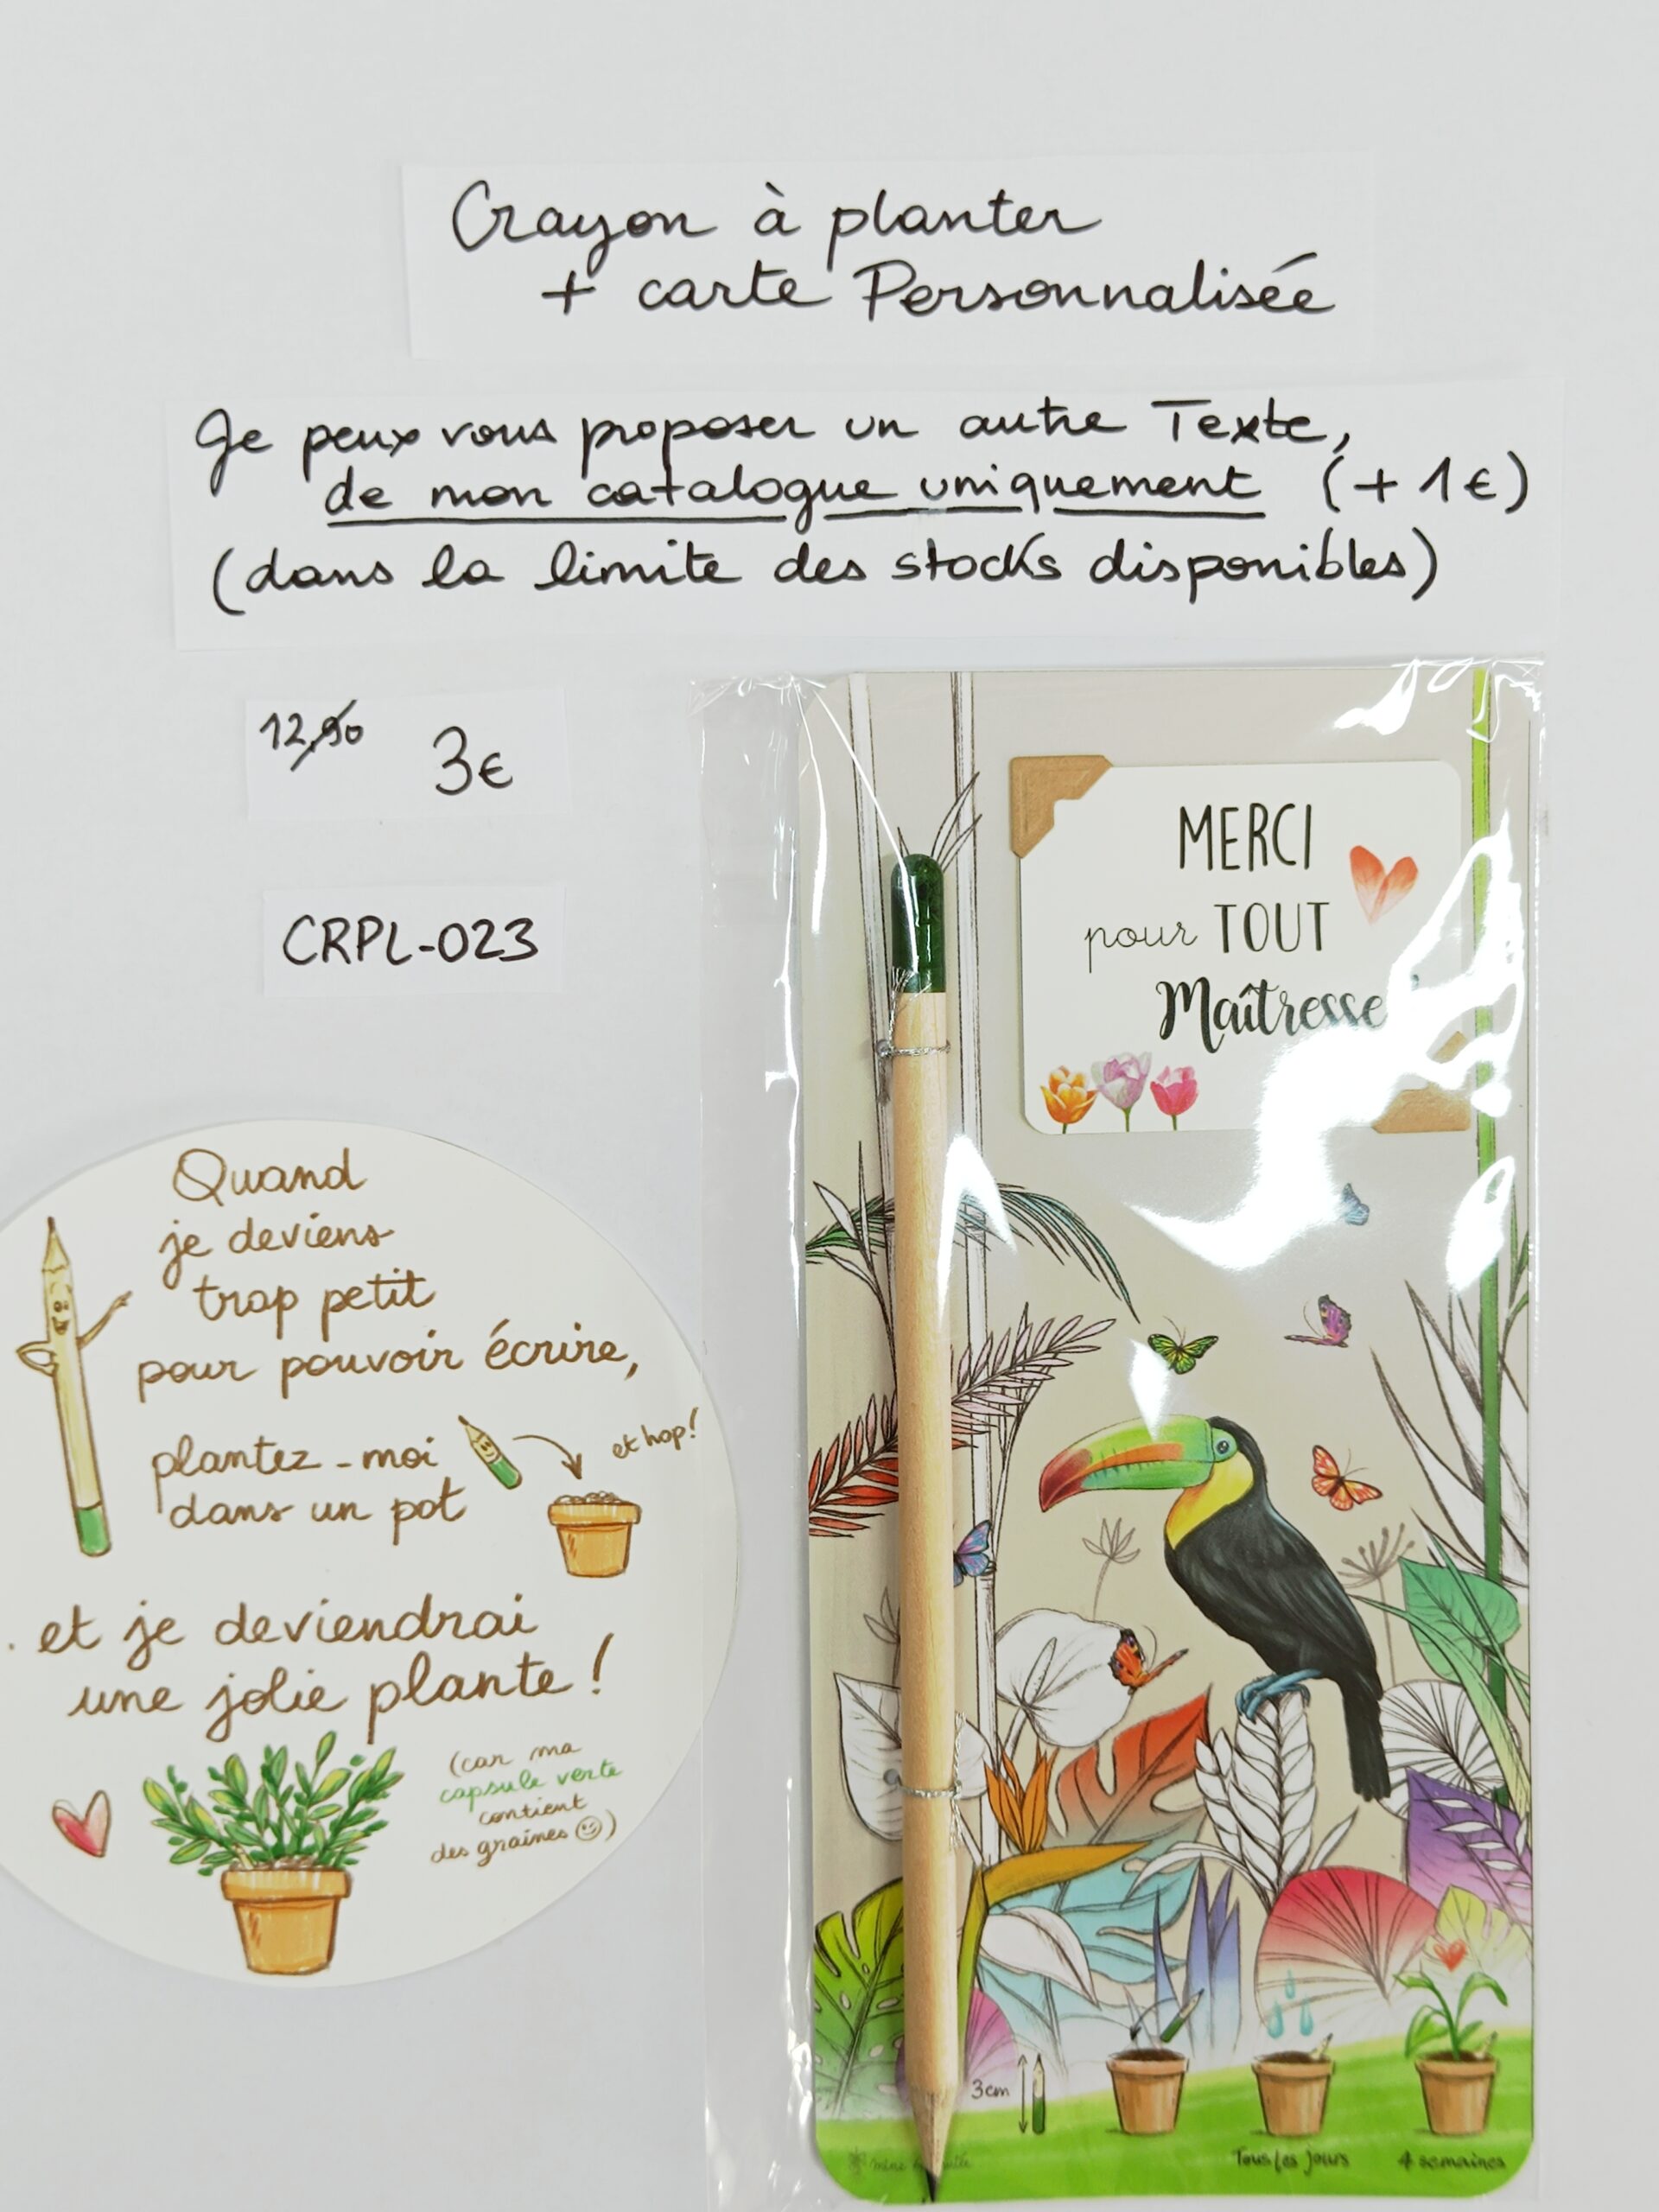 Crayon à planter
+ carte Personnalisée
Je peux vous proposer un autre Texte,
de mon catalogue uniquement (+ 1€)
(dans la limite des stocks disponibles)
12,90 3€
CRPL-023
MERCI
pour TOUT
Maîtresse
Quand
je deviens
trop petit
pour pouvoir écrire,
plantez-moi
dans un pot
et hop!
et je deviendrai
une jolie plante !
(car ma
capsule verte
contient
des graines ☺)
3cm
Tous les jours
4 semaines